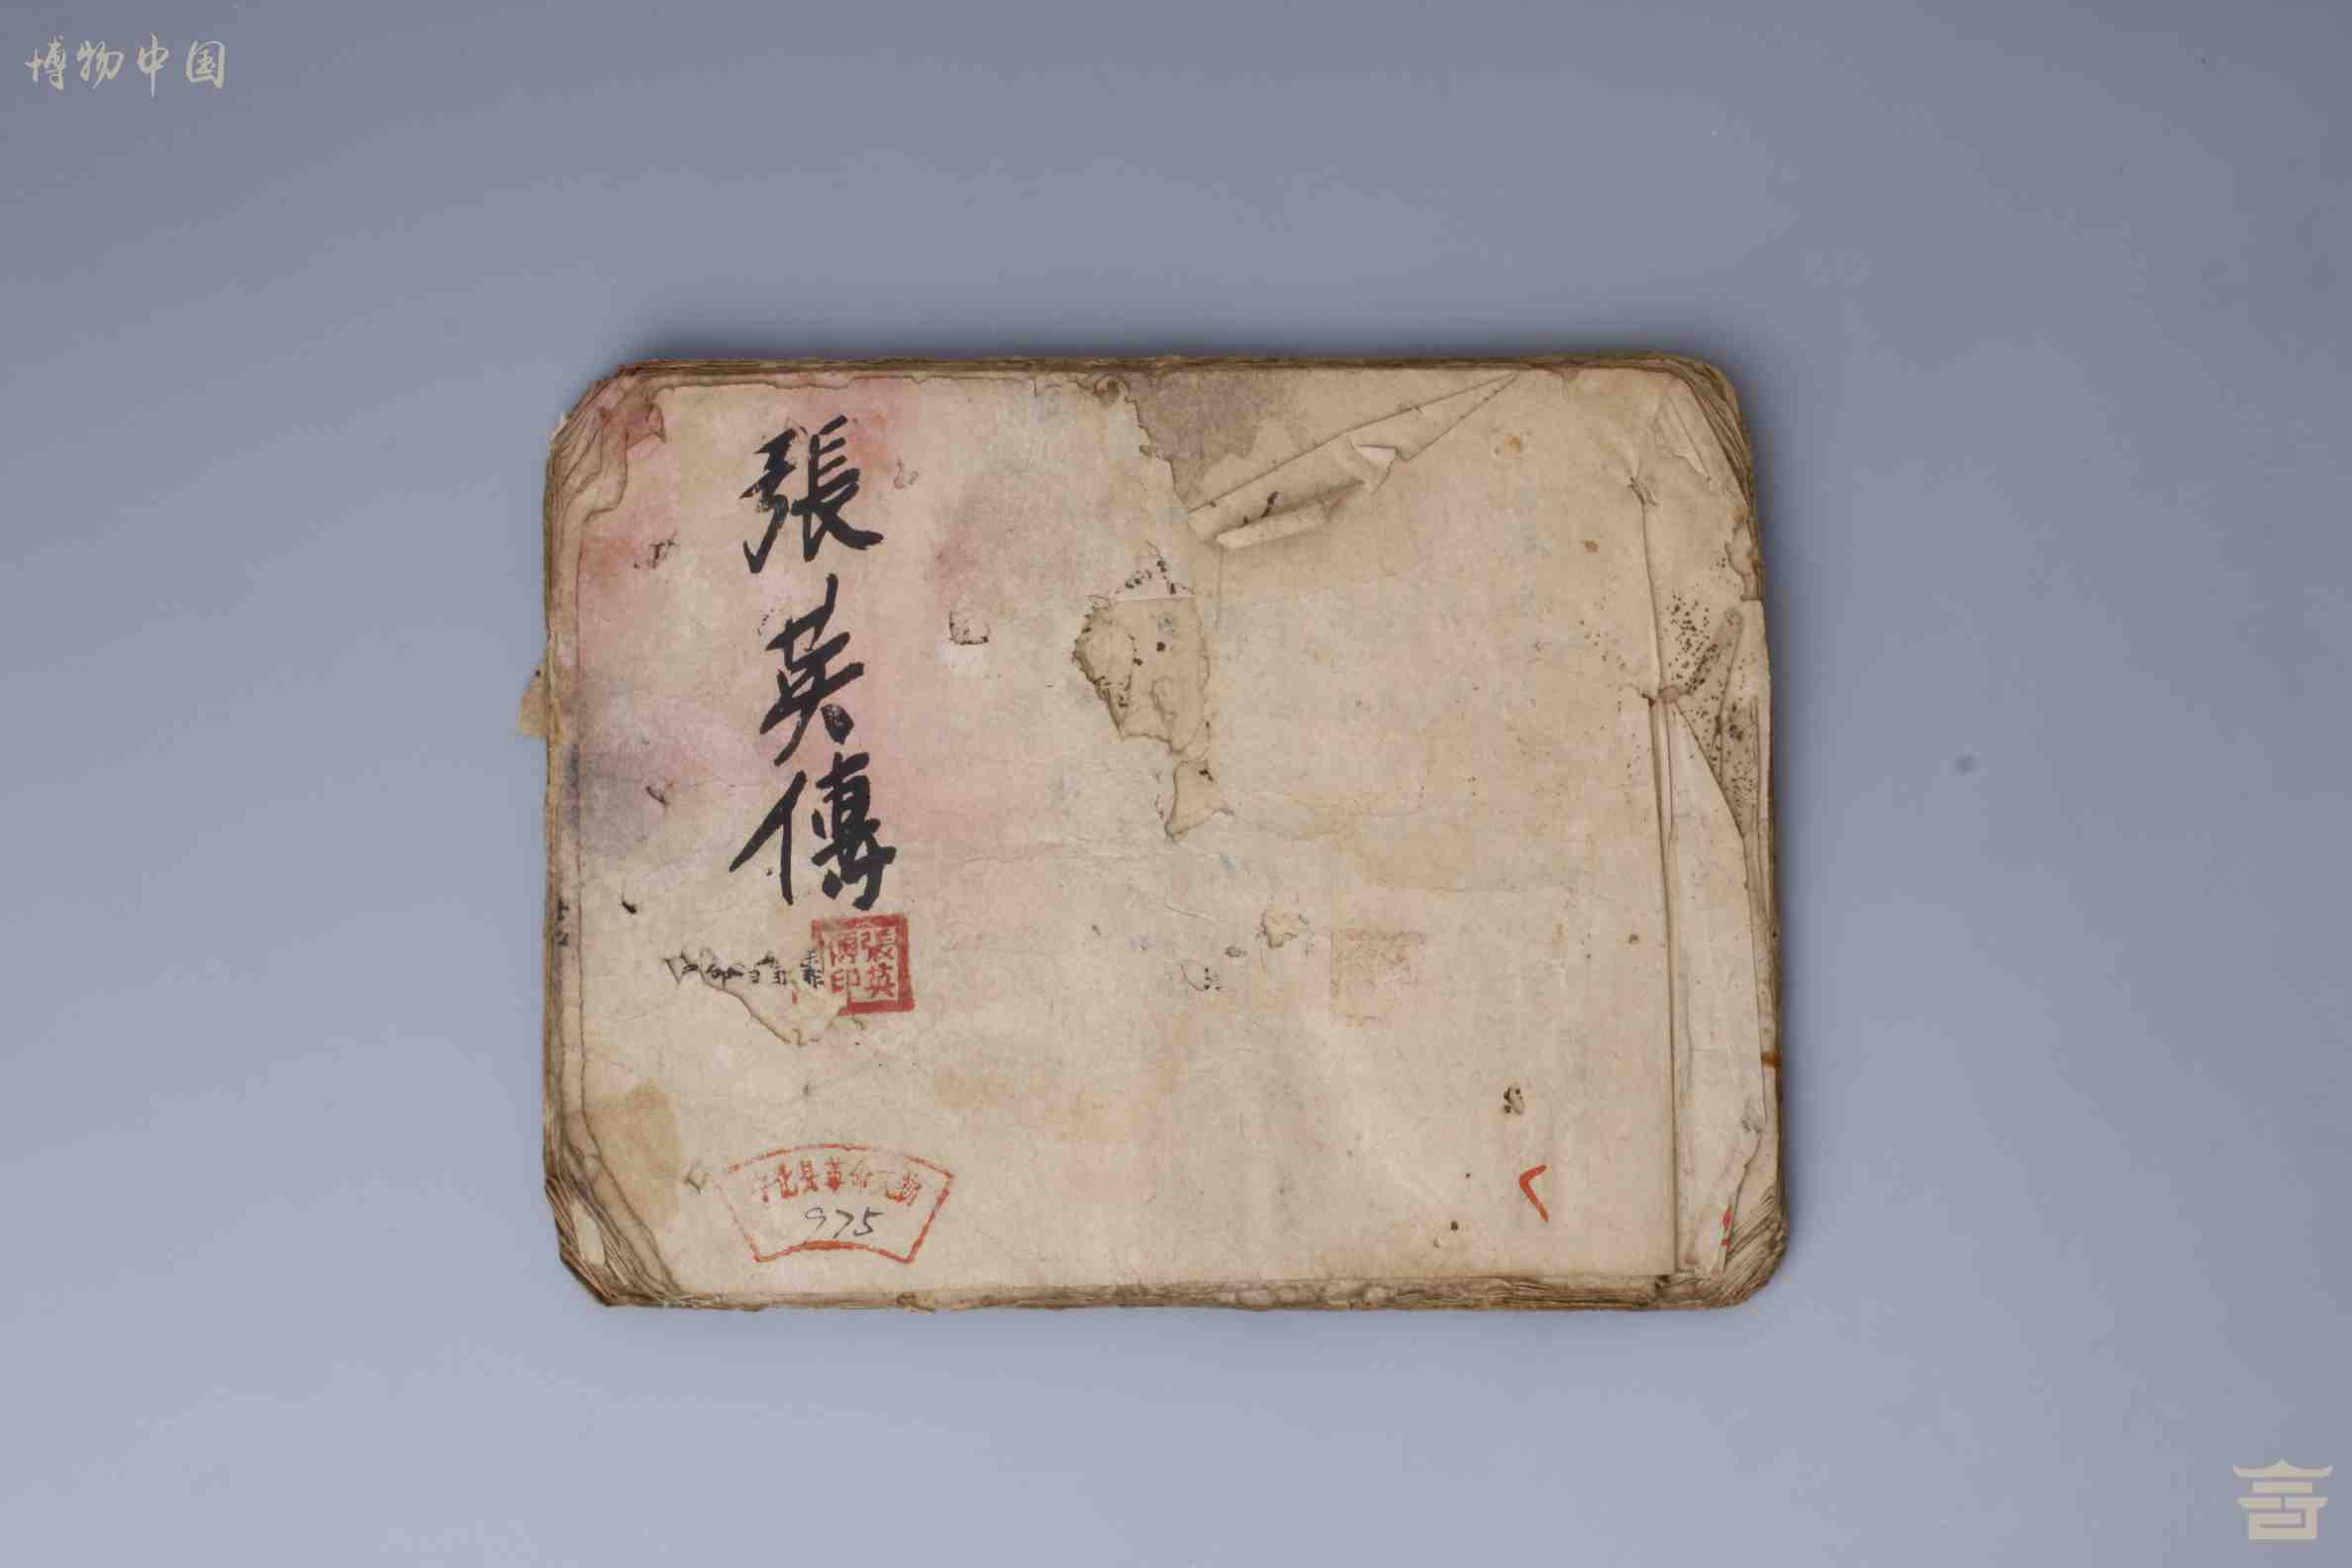 博物中国
張英傳
張英
傳印
宁化县革命文物
975